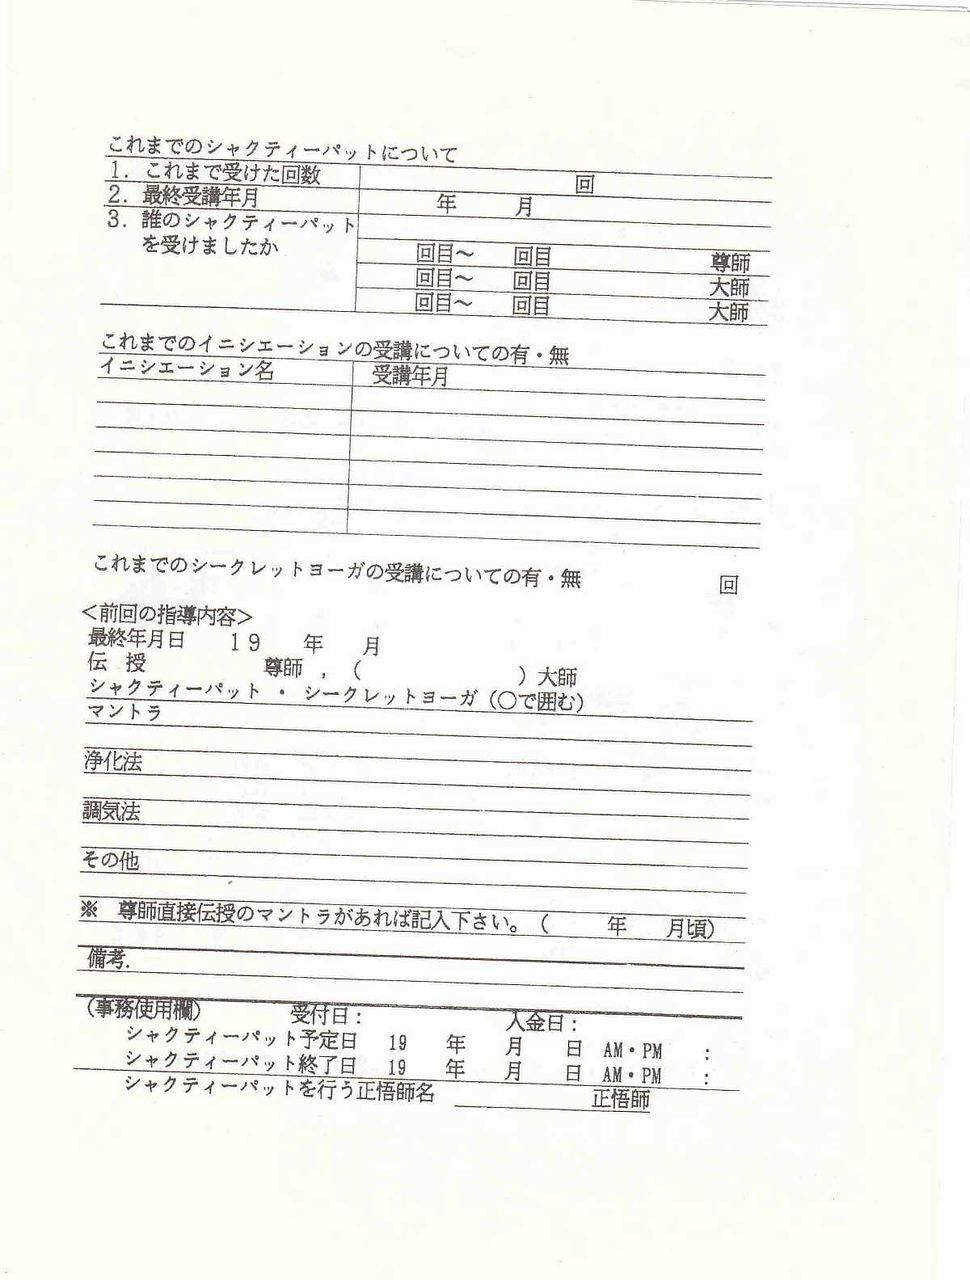 これまでのシャクティーパットについて
1．これまで受けた回数 回
2．最終受講年月 年 月
3．誰のシャクティーパット
を受けましたか
回目～ 回目 尊師
回目～ 回目 大師
回目～ 回目 大師
これまでのイニシエーションの受講についての有・無
イニシエーション名 受講年月
これまでのシークレットヨーガの受講についての有・無 回
＜前回の指導内容＞
最終年月日 19 年 月
伝 授 尊師 ，（ ）大師
シャクティーパット ・ シークレットヨーガ（○で囲む）
マントラ
浄化法
調気法
その他
※ 尊師直接伝授のマントラがあれば記入下さい。（ 年 月頃）
備考．
（事務使用欄） 受付日： 入金日：
シャクティーパット予定日 19 年 月 日 AM・PM ：
シャクティーパット終了日 19 年 月 日 AM・PM ：
シャクティーパットを行う正悟師名 正悟師